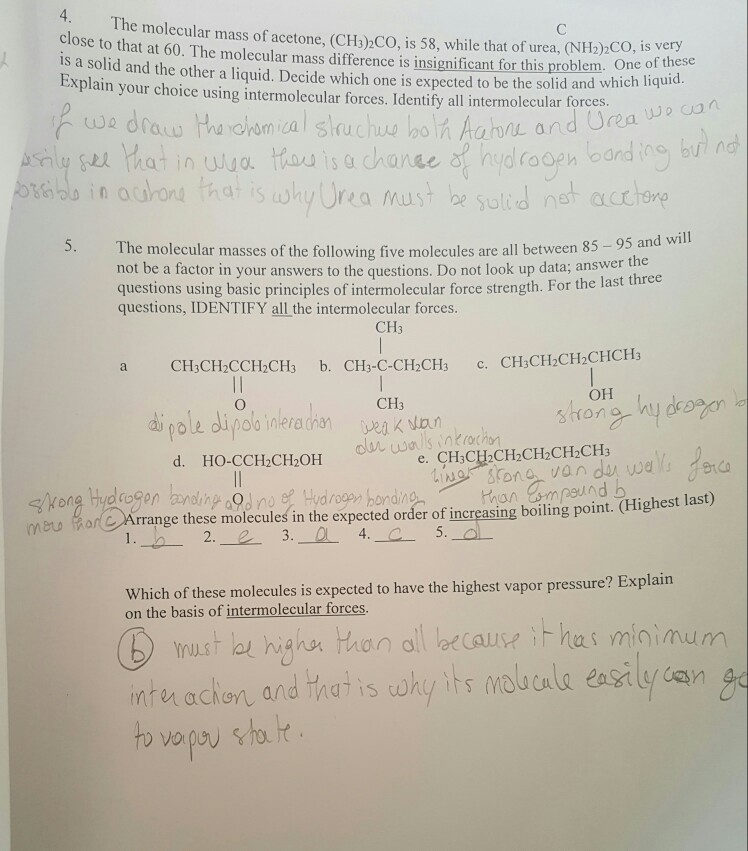 C
4. The molecular mass of acetone, (CH3)2CO, is 58, while that of urea, (NH2)2CO, is very
close to that at 60. The molecular mass difference is insignificant for this problem. One of these
is a solid and the other a liquid. Decide which one is expected to be the solid and which liquid.
Explain your choice using intermolecular forces. Identify all intermolecular forces.
if we draw the chomical structure both Acetone and Urea we can
easily see that in urea there is a chance of hydrogen bonding but not
possible in acetone that is why Urea must be solid not acetone
5. The molecular masses of the following five molecules are all between 85 – 95 and will
not be a factor in your answers to the questions. Do not look up data; answer the
questions using basic principles of intermolecular force strength. For the last three
questions, IDENTIFY all the intermolecular forces.
CH3
|
a CH3CH2CCH2CH3 b. CH3-C-CH2CH3 c. CH3CH2CH2CHCH3
|| | |
O CH3 OH
dipole dipole interaction weak van strong hydrogen b
der walls interaction
d. HO-CCH2CH2OH e. CH3CH2CH2CH2CH2CH3
|| linear strong van der walls force
O than Compound b
strong Hydrogen bonding and no of Hydrogen bonding
more than c Arrange these molecules in the expected order of increasing boiling point. (Highest last)
1. b 2. e 3. a 4. c 5. d
Which of these molecules is expected to have the highest vapor pressure? Explain
on the basis of intermolecular forces.
b must be higher than all because it has minimum
interaction and that is why its molecule easily can go
to vapor state.